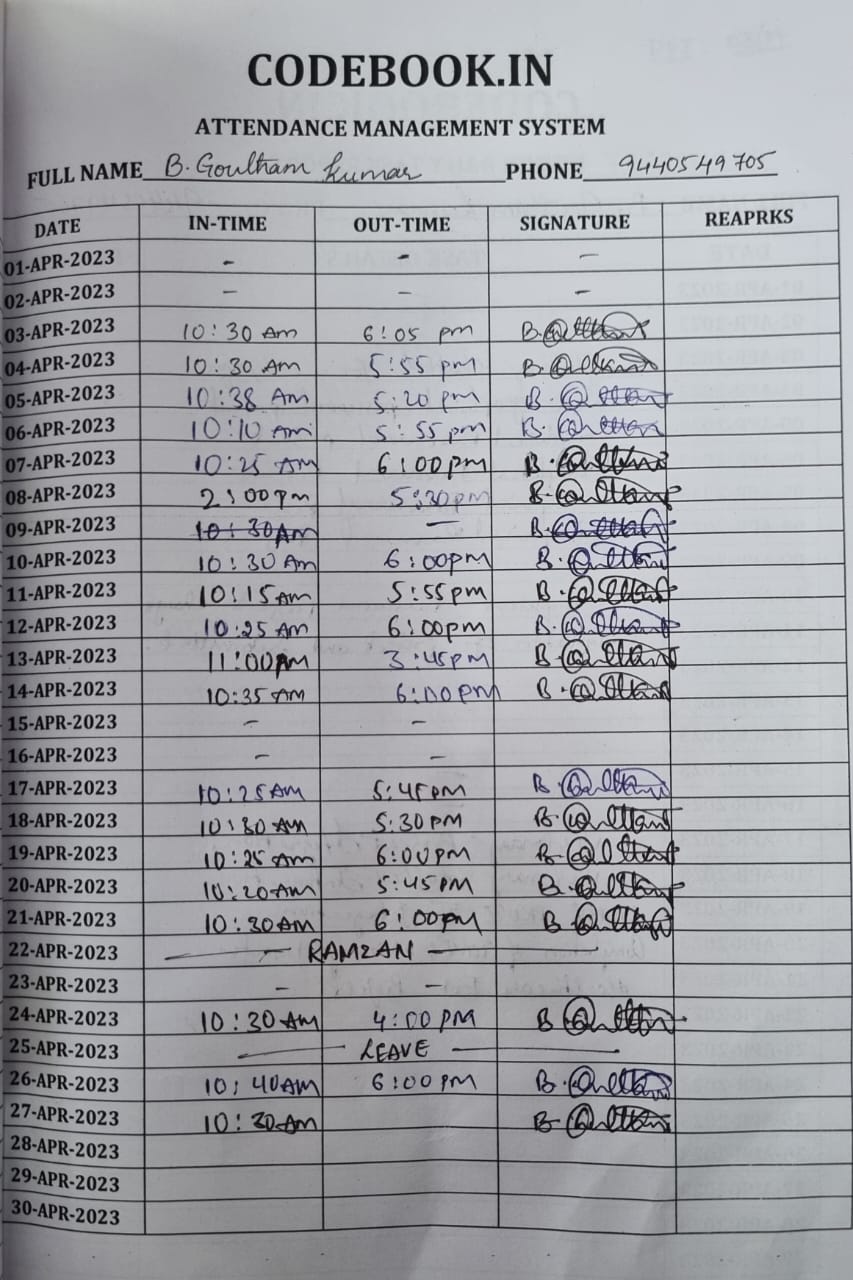 CODEBOOK.IN
ATTENDANCE MANAGEMENT SYSTEM
FULL NAME B. Goultham Kumar PHONE 9440549705
DATE IN-TIME OUT-TIME SIGNATURE REAPRKS
01-APR-2023 - - -
02-APR-2023 - - -
03-APR-2023 10:30 Am 6:05 pm B.
04-APR-2023 10:30 Am 5:55 pm B.
05-APR-2023 10:38 Am 5:20 pm B.
06-APR-2023 10:10 Am 5:55 pm B.
07-APR-2023 10:25 AM 6:00pm B.
08-APR-2023 2:00pm 5:30pm B.
09-APR-2023 10:30AM - B.
10-APR-2023 10:30 Am 6:00pm B.
11-APR-2023 10:15 Am 5:55pm B.
12-APR-2023 10:25 Am 6:00pm B.
13-APR-2023 11:00AM 3:45pm B.
14-APR-2023 10:35 AM 6:00PM B.
15-APR-2023 - -
16-APR-2023 - -
17-APR-2023 10:25AM 5:45PM B.
18-APR-2023 10:30 AM 5:30PM B.
19-APR-2023 10:25 AM 6:00PM B.
20-APR-2023 10:20AM 5:45PM B.
21-APR-2023 10:30AM 6:00PM B
22-APR-2023 - - RAMZAN - -
23-APR-2023 - -
24-APR-2023 10:30 AM 4:00 PM B
25-APR-2023 - LEAVE - -
26-APR-2023 10:40AM 6:00PM B.
27-APR-2023 10:30Am B
28-APR-2023
29-APR-2023
30-APR-2023